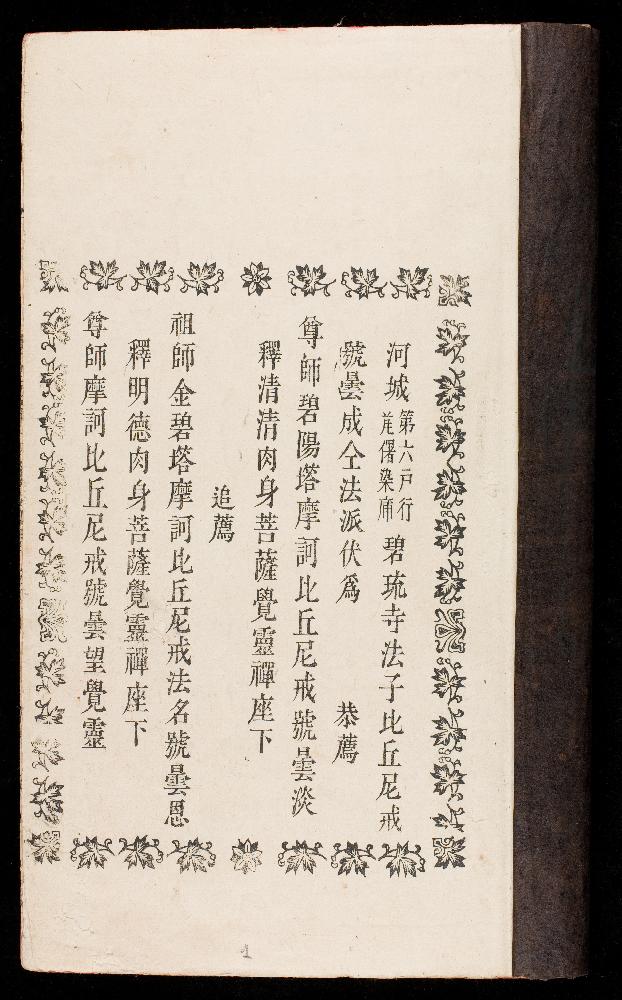 河城第六戸行尾𤊰染庯碧琉寺法子比丘尼戒
號曇成仝法派伏爲 恭薦
尊師碧陽塔摩訶比丘尼戒號曇淡
釋清清肉身菩薩覺靈禪座下
追薦
祖師金碧塔摩訶比丘尼戒法名號曇恩
釋明德肉身菩薩覺靈禪座下
尊師摩訶比丘尼戒號曇望覺靈
1